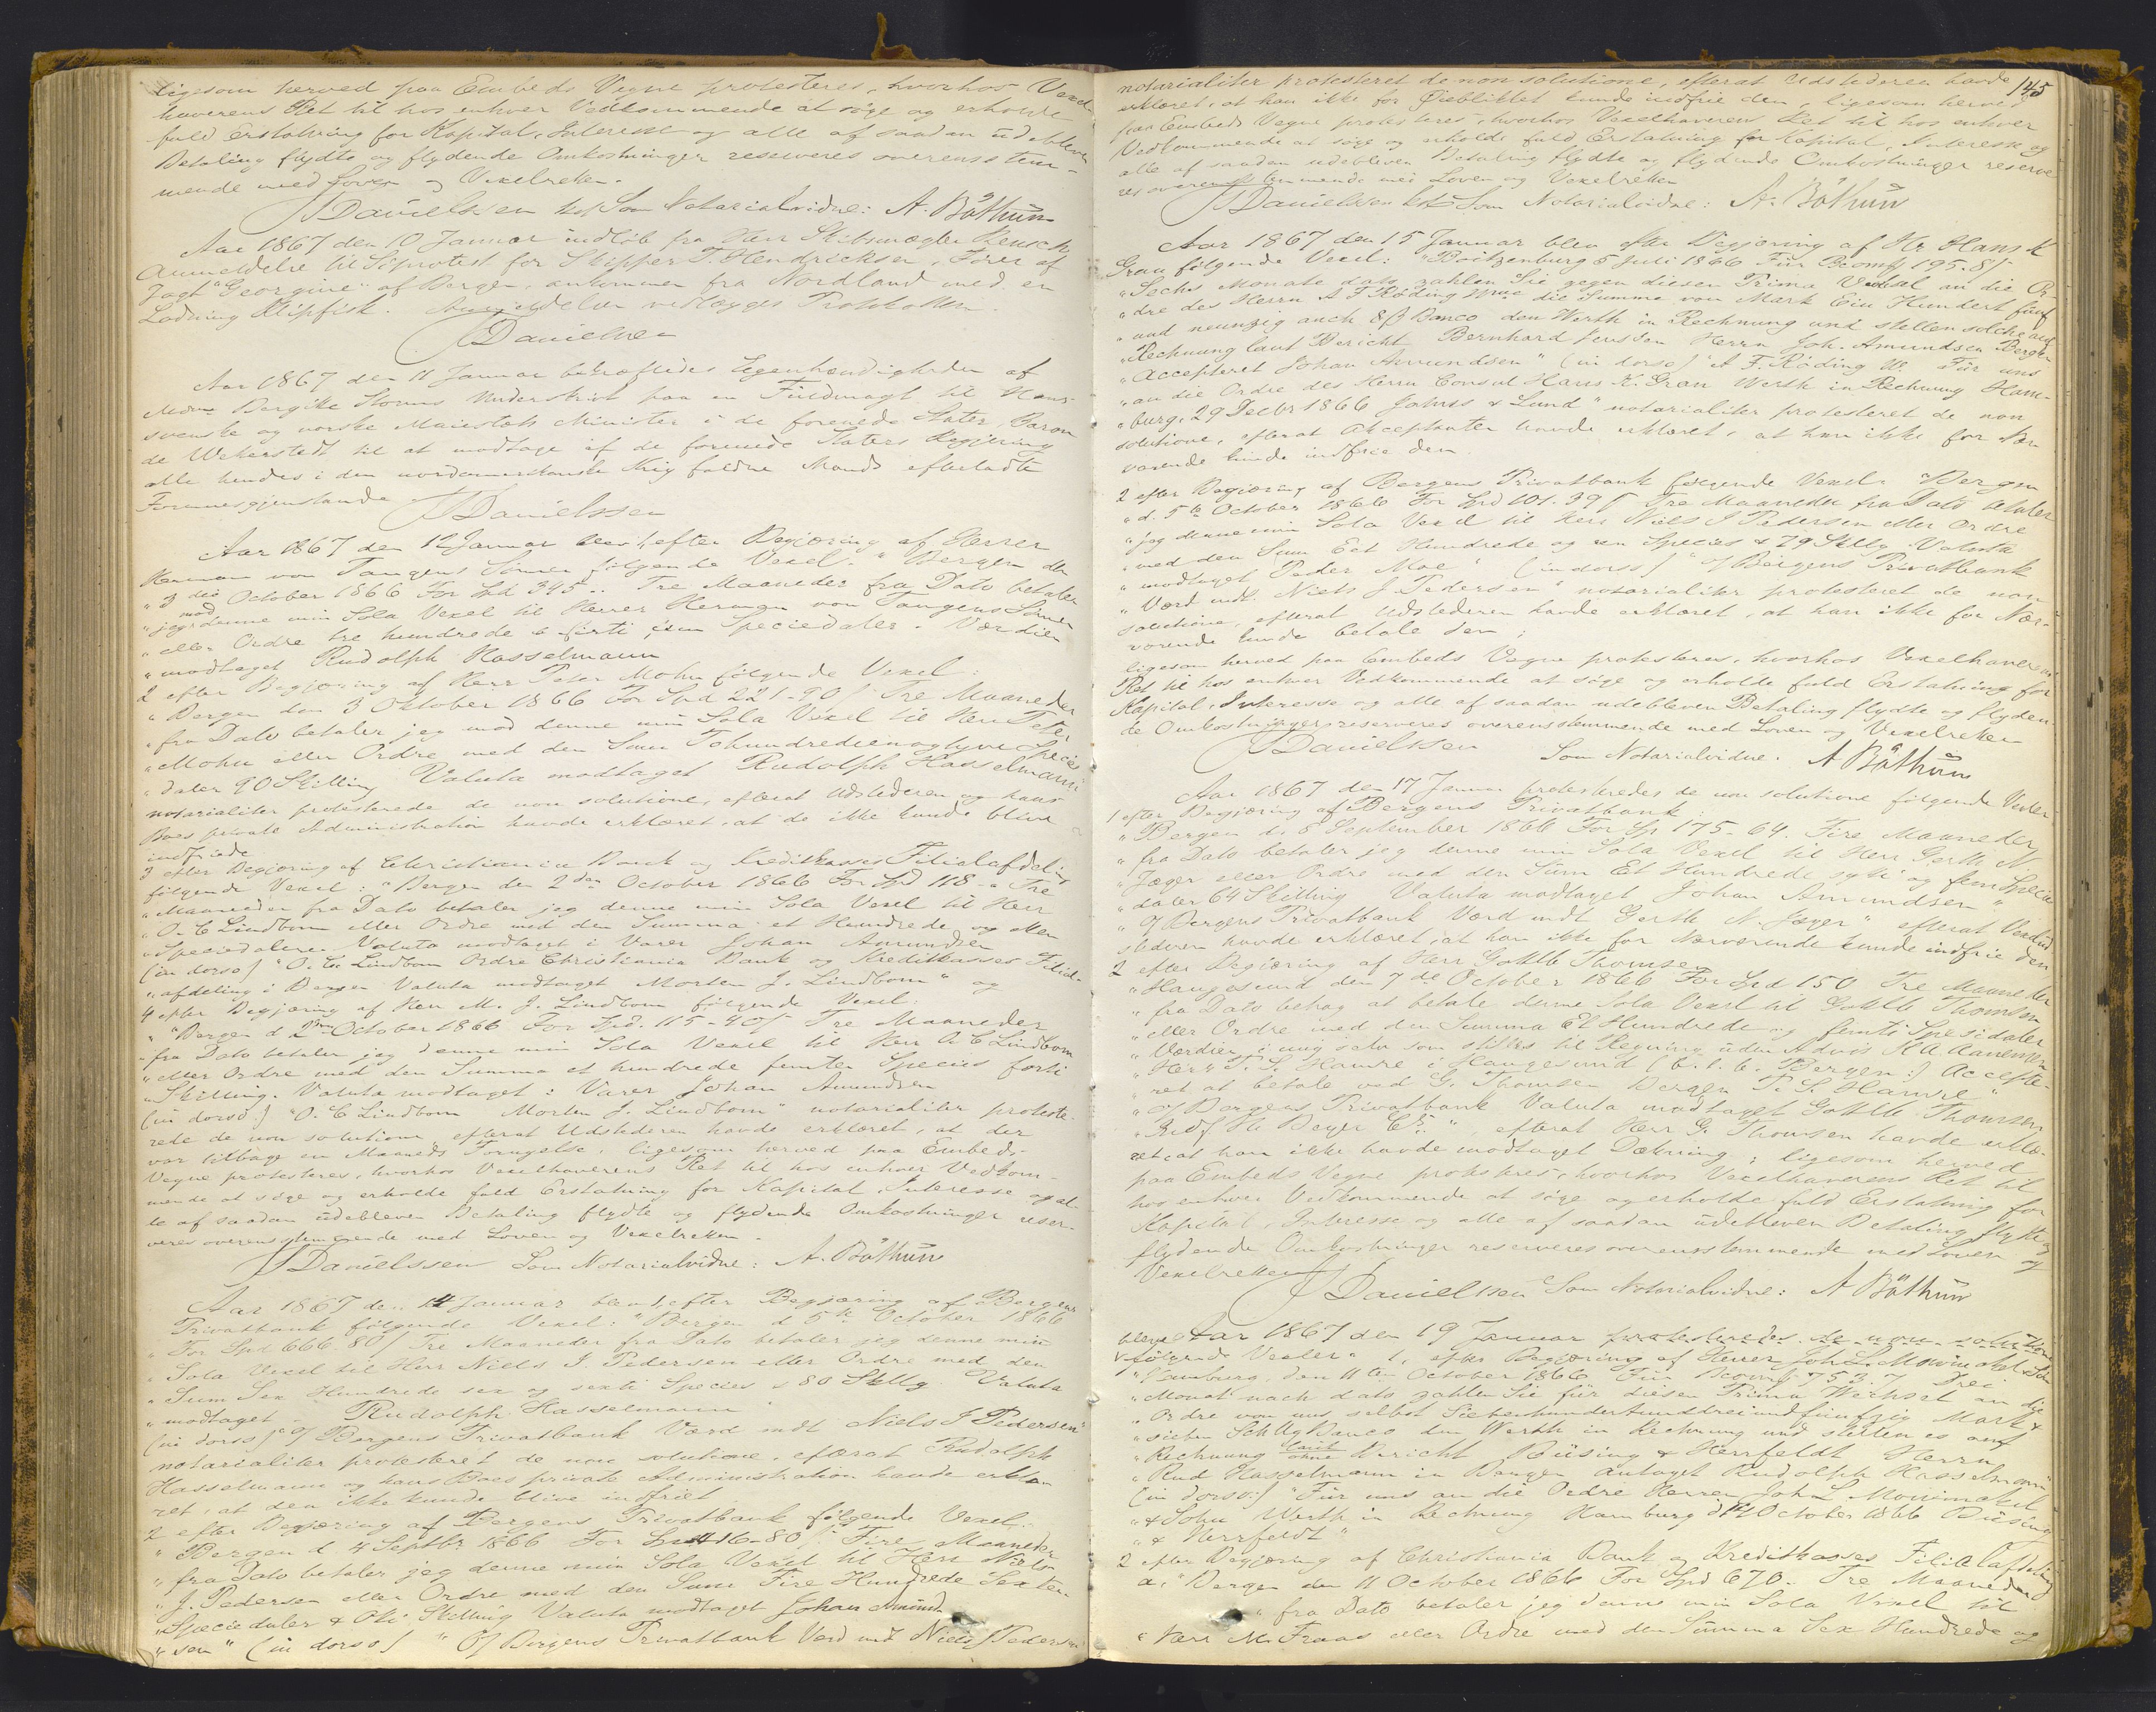 ligesom herved paa Embeds Vegne protesteres, hvorhos Vexel-
haverens Ret til hos enhver Vedkommende at søge og erholde
fuld Erstatning for Kapital, Interesse og alle af saadan udebleven
Betaling flydte og flydende Omkostninger reserveres overensstem-
mende med Loven og Vexelretten.
J Danielssen kst Som Notarialvidne: A. Böthun
Aar 1867 den 10 Januar indløb fra Herr Skibsmægler Rensch
Anmeldelse til Söprotest for Skipper T. Hendricksen, Fører af
Jagt "Georgine" af Bergen, ankommen fra Nordland med en
Ladning Klipfisk. Anmeldelsen vedlægges Protokollen.
J Danielssen
Aar 1867 den 11 Januar bekræftedes Egenhændigheden af
Mdme Bergitte Storms Underskrift paa en Fuldmagt til Hans
svenske og norske Maiestæts Minister i de forenede Stater, Baron
de Wetterstedt til at modtage af de forenede Staters Regjering
alle hendes i den nordamerikanske Krig faldne Mands efterladte
Formuesgjenstande
J Danielssen
Aar 1867 den 12 Januar blev 1, efter Begjæring af Herrer
Herman von Tangens Sønner følgende Vexel: "Bergen den
" 3 die October 1866 For Spd 345 .. Tre Maaneder fra Dato betaler
" jeg mod denne min Sola Vexel til Herrer Herman von Tangens Sönner
" eller Ordre tre hundrede & firti fem Speciedaler. Værdien
" modtaget Rudolph Hasselmann
2 efter Begjæring af Herr Peter Mohn følgende Vexel:
" Bergen den 3 Oktober 1866 For Spd 221-90 ß Tre Maaneder
" fra Dato betaler jeg mod denne min Sola Vexel til Herr Peter
" Mohn eller Ordre med den Sum Tohundredeenogtyve Specie
" daler 90 Skilling Valuta modtaget Rudolph Hasselmann"
notarialiter protesterede de non solutione, efterat Udstederen og hans
Boes private Administration havde erklæret, at de ikke kunde blive
indfriede
3 efter Begjæring af Christiania Bank og Kreditkasses Filialafdeling
følgende Vexel: "Bergen den 2den October 1866 For Spd 118 - Tre
" Maaneder fra Dato betaler jeg denne min Sola Vexel til Herr
" O. C Lindbom eller Ordre med den Summa et Hundrede og atten
" Speciedaler. Valuta modtaget i Varer Johan Amundsen
(in dorso) "O. C. Lindbom Ordre Christiania Bank og Kreditkasses Filial-
" afdeling i Bergen Valuta modtaget Morten J. Lindbom" og
4 efter Begjæring af Herr M. J. Lindbom følgende Vexel:
" Bergen d 2den October 1866 For Spd. 115-40 ß Tre Maaneder
" fra Dato betaler jeg denne min Sola Vexel til Herr O. C Lindbom
" eller Ordre med den Summa et hundrede femten Species forti
" Skilling. Valuta modtaget i Varer Johan Amundsen
(in dorso) "O. C Lindbom Morten J. Lindbom" notarialiter proteste-
rede de non solutione, efterat Udstederen havde erklæret, at der
var tilbage en Maaneds Fornyelse, ligesom herved paa Embeds-
Vegne protesteres, hvorhos Vexelhaverens Ret til hos enhver Vedkom-
mende at søge og erholde fuld Erstatning for Kapital, Interesse og al-
le af saadan udebleven Betaling flydte og flydende Omkostninger reser-
veres overensstemmende med Loven og Vexelretten.
J Danielssen Som Notarialvidne: A. Böthun
Aar 1867 den 14 Januar blev 1, efter Begjæring af Bergens
Privatbank følgende Vexel: "Bergen d 5te October 1866
" For Spd 666.80 ß Tre Maaneder fra Dato betaler jeg denne min
" Sola Vexel til Herr Niels J. Pedersen eller Ordre med den
" Sum Sex Hundrede sex og sexti Species & 80 Skllg. Valuta
" modtaget - Rudolph Hasselmann
(in dorso) " O/ Bergens Privatbank Værd mdt Niels J Pedersen"
notarialiter protesteret de non solutione, efterat Rudolph
Hasselmann og hans Boes private Administration havde erklæ-
ret, at den ikke kunde blive indfriet
2 efter Begjæring af Bergens Privatbank følgende Vexel:
" Bergen d. 4 Septbr 1866 For Spd 416-80 ß. Fire Maaneder
" fra Dato betaler jeg denne min Sola Vexel til Herr Niels
" J. Pedersen eller Ordre med den Sum Fire Hundrede Sexten
" Speciedaler & Otti Skilling Valuta modtaget Johan Amund-
" sen" (in dorso) " O/ Bergens Privatbank Verd mdt Niels J Pedersen
145
notarialiter protesteret de non solutione, efterat Udstederen havde
erklæret, at han ikke for Øieblikket kunde indfrie den, ligesom herved
paa Embeds Vegne protesteres, hvorhos Vexelhaverens Ret til hos enhver
Vedkommende at søge og erholde fuld Erstatning for Kapital, Interesse og
alle af saadan udebleven Betaling flydte og flydende Omkostninger reserve-
res overensstemmende med Loven og Vexelretten
J Danielssen kst Som Notarialvidne: A. Böthun
Aar 1867 den 15 Januar blev efter Begjæring af Hr. Hans K
Gran følgende Vexel: "Boitzenburg 5 Juli 1866 Für Bcomk 195.8 ß
" Sechs Monate dato zahlen Sie gegen diesen Prima Wechsel an die Or-
" dre des Herrn A F Röding Wwe die Summe von Mark Ein Hundert fünf
" und neunzig auch 8 ß Banco den Werth in Rechnung und stellen solche auf
" Rechnung laut Bericht Bernhard Jenssen Herrn Joh. Amundsen Bergen
" Accepteret Johan Amundsen" (in dorso) "A F. Röding W. Für uns
" an die Ordre des Herrn Consul Hans K. Gran Werth in Rechnung Ham-
" burg, 29 Decbr 1866 Johnss & Lund" notarialiter protesteret de non
solutione, efterat Akceptanten havde erklæret, at han ikke for Nær-
værende kunde indfrie den.
2 efter Begjæring af Bergens Privatbank følgende Vexel: "Bergen
" d. 5te October 1866 For Spd 101.29 ß Tre Maaneder fra Dato betaler
" jeg denne min Sola Vexel til Herr Niels J Pedersen eller Ordre
" med den Sum Eet Hundrede og een Species & 29 Skllg. Valuta
" modtaget Peder Moe" (in dorso) "O/ Bergens Privatbank
" Værd mdt. Niels J. Pedersen" notarialiter protesteret de non
solutione, efterat Udstederen havde erklæret, at han ikke for Nær-
værende kunde betale den;
ligesom herved paa Embeds Vegne protesteres, hvorhos Vexelhaverens
Ret til hos enhver Vedkommende at søge og erholde fuld Erstatning for
Kapital, Interesse og alle af saadan udebleven Betaling flydte og flyden-
de Omkostninger reserveres overensstemmende med Loven og Vexelretten
J Danielssen Som Notarialvidne. A Böthun
Aar 1867 den 17 Januar protesteredes de non solutione følgende Vexler
1 efter Begjæring af Bergens Privatbank:
" Bergen d. 8 September 1866 For Sp 175-64. Fire Maaneder
" fra Dato betaler jeg denne min Sola Vexel til Herr Gerth N
" Jæger eller Ordre med den Sum Et Hundrede sytti og fem Specie
" daler 64 Skilling Valuta modtaget Johan Amundsen"
" O/ Bergens Privatbank Værd mdt Gerth N. Jæger" efterat Vexelud-
stederen havde erklæret, at han ikke for Nærværende kunde indfrie den
2 efter Begjæring af Herr Gottlb Thomsen
" Haugesund den 7de October 1866 For Spd 150 Tre Maaneder
" fra Dato behag at betale denne Sola Vexel til Gottlb Thomsen
" eller Ordre med den Summa Et Hundrede og femti Spesidaler
" Værdien i mig selv som stilles til Regning uden Advis K A. Aanensen
" Herr T. S. Hamre i Haugesund (b. t. b. Bergen :) Accepte-
" ret at betale ved G. Thomsen Bergen T. S. Hamre"
" O/ Bergens Privatbank Valuta modtaget Gottlb Thomsen
" Beyer", efterat Herr G. Thomsen havde erklæ-
ret, at han ikke havde modtaget Dækning; ligesom herved
paa Embeds Vegne protesteres, hvorhos Vexelhaverens Ret til
hos enhver Vedkommende at søge og erholde fuld Erstatning for
Kapital, Interesse og alle af saadan udebleven Betaling flydte og
flydende Omkostninger reserveres overensstemmende med Loven og
Vexelretten
J Danielssen Som Notarialvidne: A Böthun
bleve Aar 1867 den 19 Januar protesteredes de non solutione
følgende Vexler: 1, efter Begjæring af Herrer Joh L. Mowinckel & Søn
" Hamburg, den 11ten October 1866 Für Bcomk 753.7 Drei
" Monat nach dato zahlen Sie für diesen Prima Wechsel an die
" Ordre von uns selbst Siebenhundertunddreiundfünfzig Mark &
" sieben Schllg Banco den Werth in Rechnung und stellen es auf
" Rechnung laut ohne Bericht Büsing & Herrfeldt Herrn
" Rud Hasselmann in Bergen Antaget Rudolph Hasselmann"
(in dorso:) "Für uns an die Ordre Herren Joh L Mowinckel
" & Sohn Werth in Rechnung Hamburg d 12 October 1866 Büsing
" & Herrfeldt"
2 efter Begjæring af Christiania Bank og Kreditkasses Filialafdeling
a, "Bergen den 11 October 1866 For Spd 670.- Tre Maaneder
" fra Dato betaler jeg denne min Sola Vexel til
" Herr M. Fraas eller Ordre med den Summa Sex Hundrede og